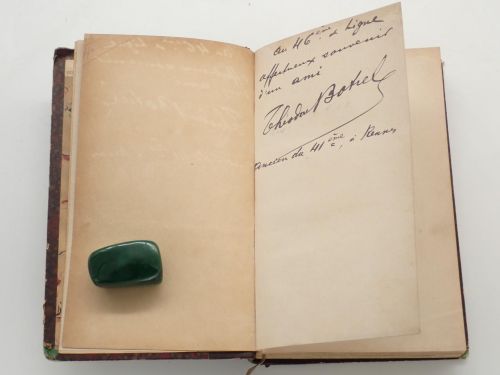 au 46ème de Ligne
affectueux souvenir
d'un ami
Théodore Botrel
ancien du 41ème, à Rennes